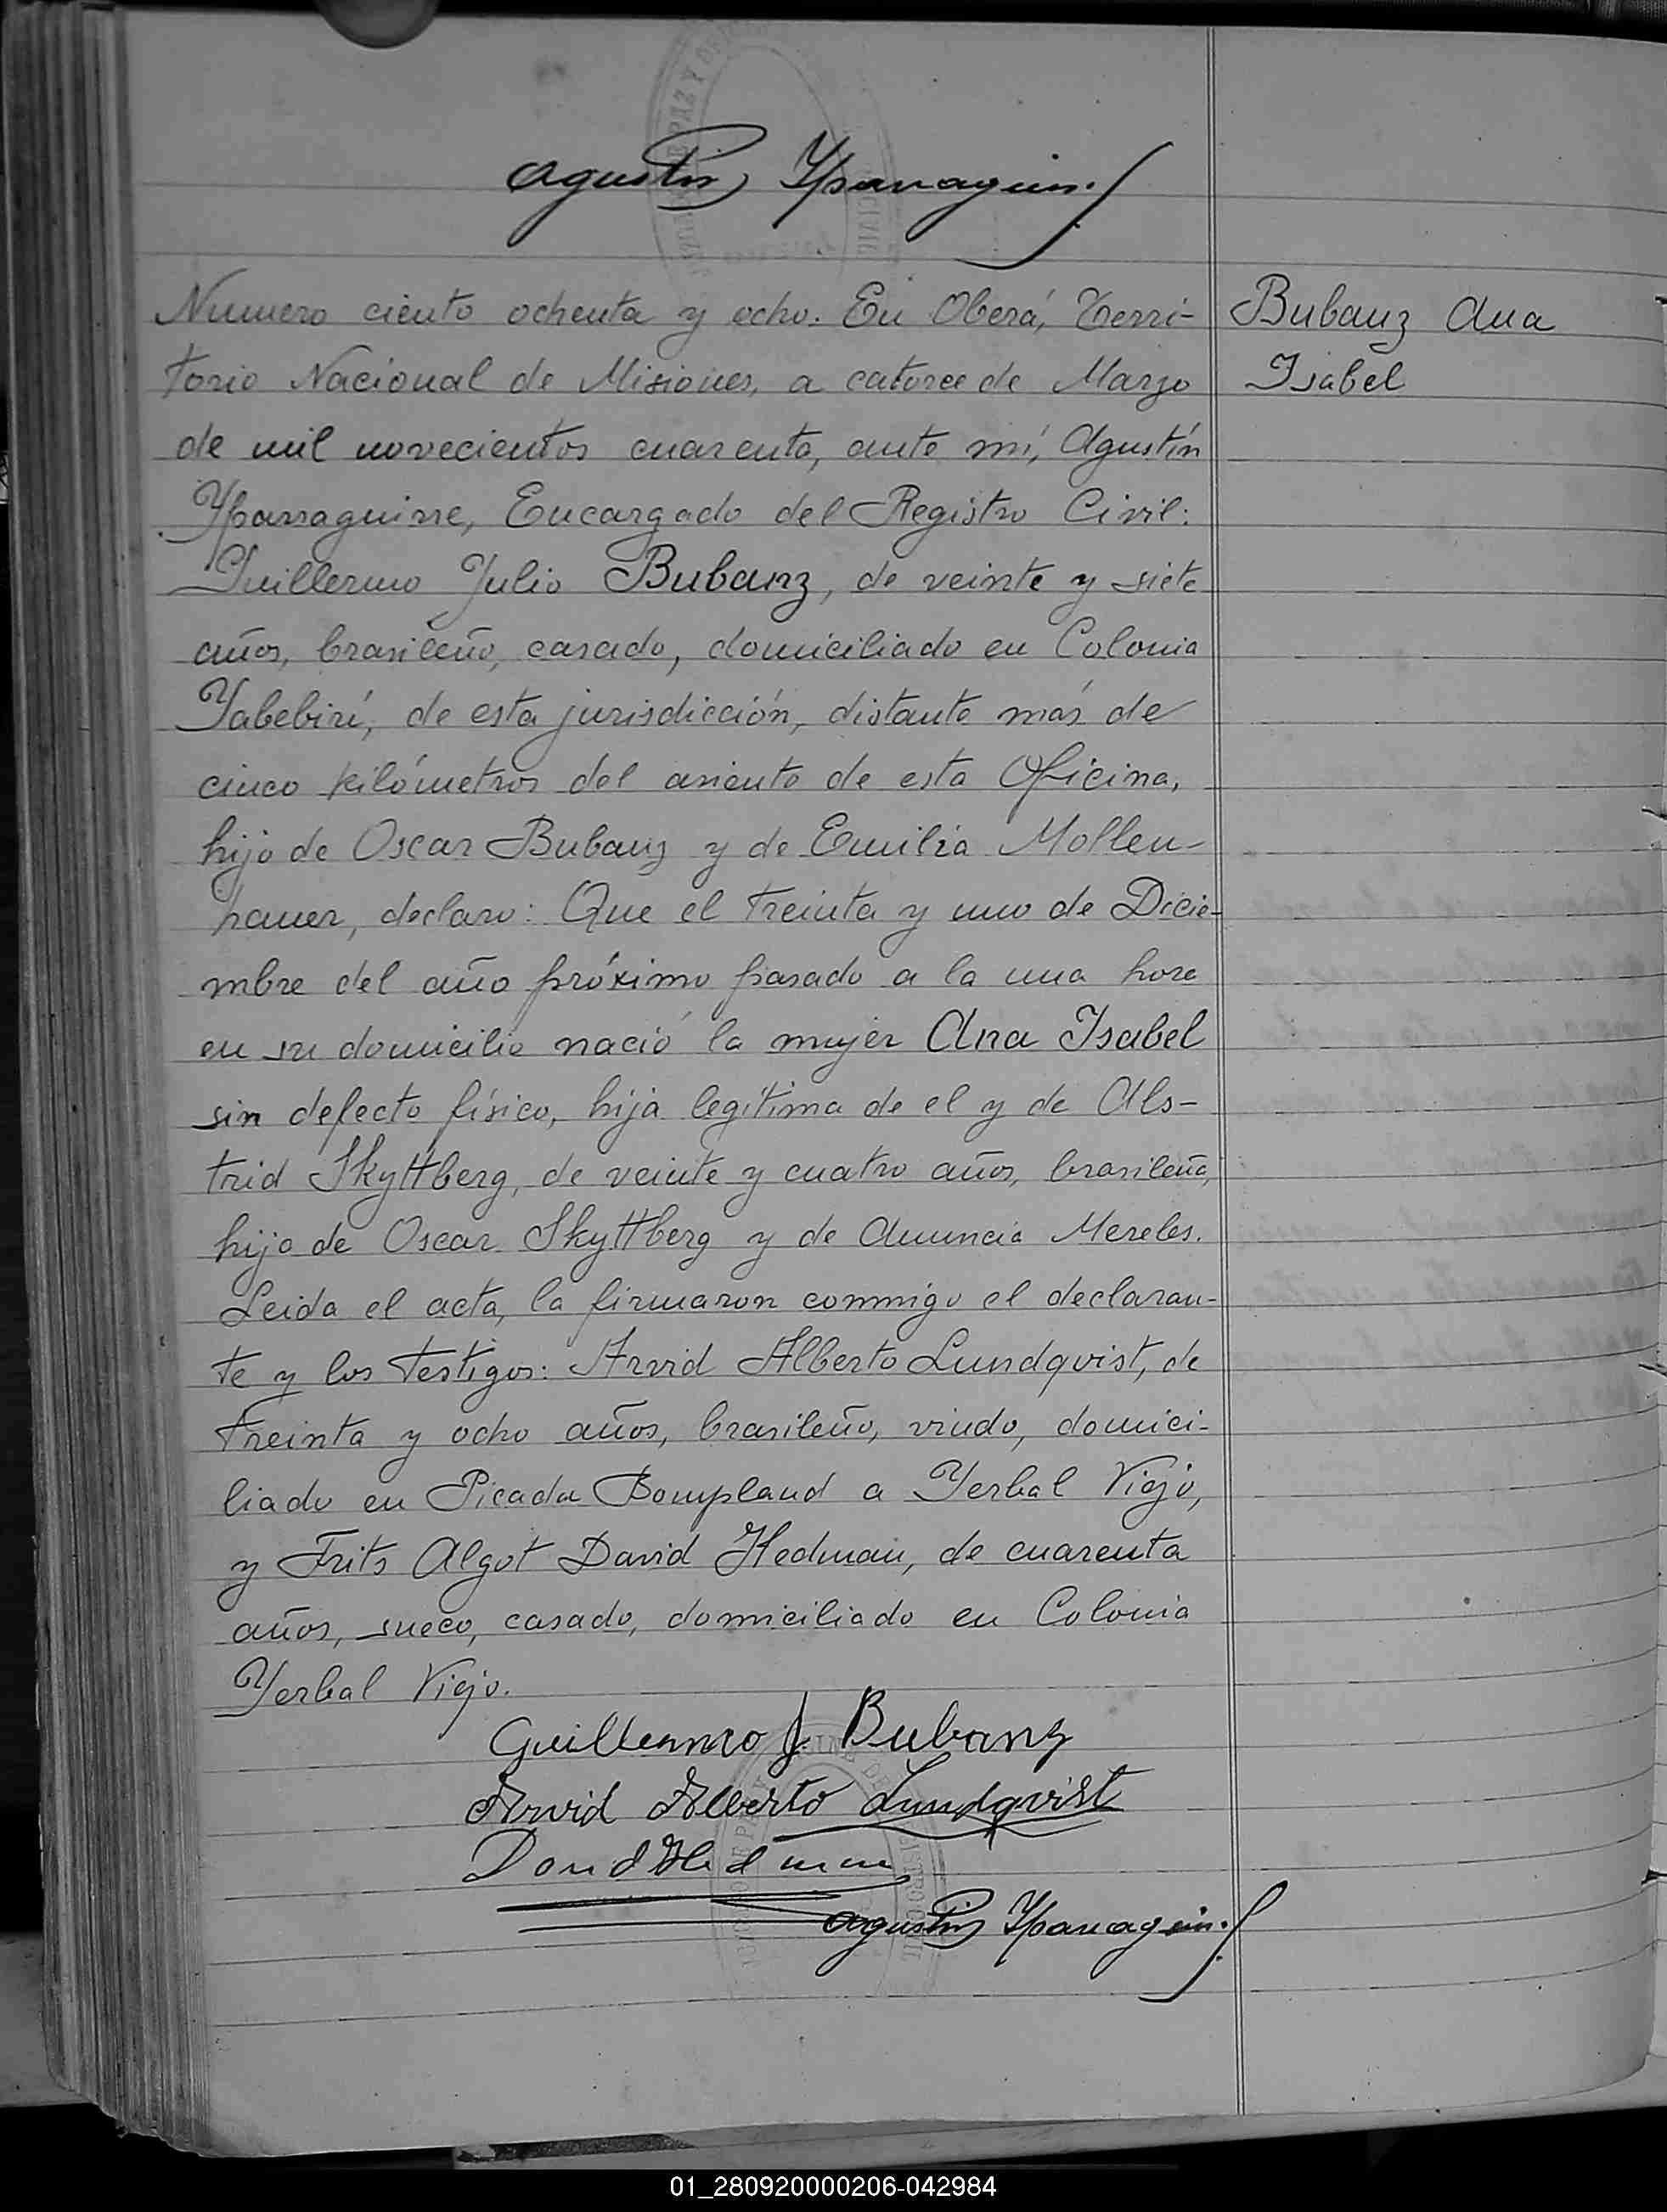 Agustín Yparraguirre
Numero ciento ochenta y ocho. En Oberá, Terri-
Bubanz Ana
torio Nacional de Misiones, a catorce de Marzo
Isabel
de mil novecientos cuarenta, ante mí, Agustín
Yparraguirre, Encargado del Registro Civil:
Guillermo Julio Bubanz, de veinte y siete
años, brasileño, casado, domiciliado en Colonia
Yabebirí, de esta jurisdicción, distante más de
cinco kilómetros del asiento de esta Oficina,
hijo de Oscar Bubanz y de Emilia Mollen-
hauer, declaro: Que el treinta y uno de Dicie-
mbre del año próximo pasado a la una hora
en su domicilio nació la mujer Ana Isabel
sin defecto físico, hija legítima de el y de Als-
trid Skyttberg, de veinte y cuatro años, brasileña,
hija de Oscar Skyttberg y de Anuncia Mereles.
Leida el acta, la firmaron conmigo el declaran-
te y los testigos: Arvid Alberto Lundqvist, de
treinta y ocho años, brasileño, viudo, domici-
liado en Picada Bompland a Yerbal Viejo,
y Frits Algot David Hedman, de cuarenta
años, sueco, casado, domiciliado en Colonia
Yerbal Viejo.
Guillermo J. Bubanz
Arvid Alberto Lundqvist
David Hedman
Agustín Yparraguirre
01_280920000206-042984